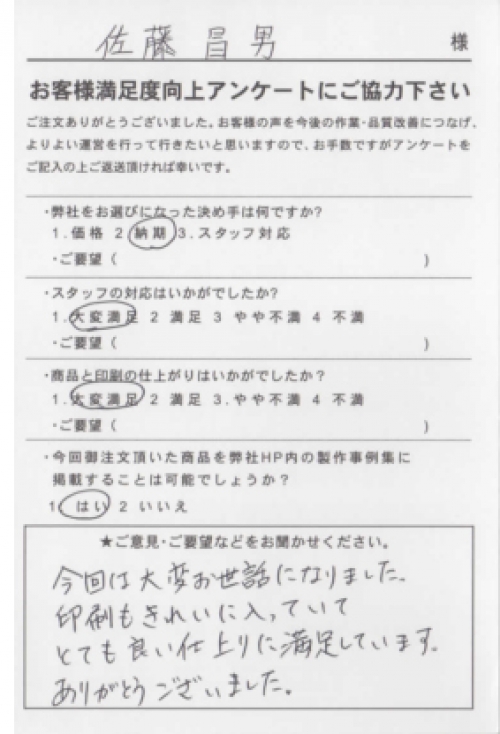 佐藤 昌男 様
お客様満足度向上アンケートにご協力下さい
ご注文ありがとうございました。お客様の声を今後の作業・品質改善につなげ、
よりよい運営を行って行きたいと思いますので、お手数ですがアンケートを
ご記入の上ご返送頂ければ幸いです。
・弊社をお選びになった決め手は何ですか?
1.価格 2 納期 3.スタッフ対応
・ご要望( )
・スタッフの対応はいかがでしたか?
1.大変満足 2 満足 3 やや不満 4 不満
・ご要望( )
・商品と印刷の仕上がりはいかがでしたか?
1.大変満足 2 満足 3.やや不満 4 不満
・ご要望( )
・今回御注文頂いた商品を弊社HP内の製作事例集に
掲載することは可能でしょうか?
1 はい 2 いいえ
★ご意見・ご要望などをお聞かせください。
今回は大変お世話になりました。
印刷もきれいに入っていて
とても良い仕上りに満足しています。
ありがとうございました。